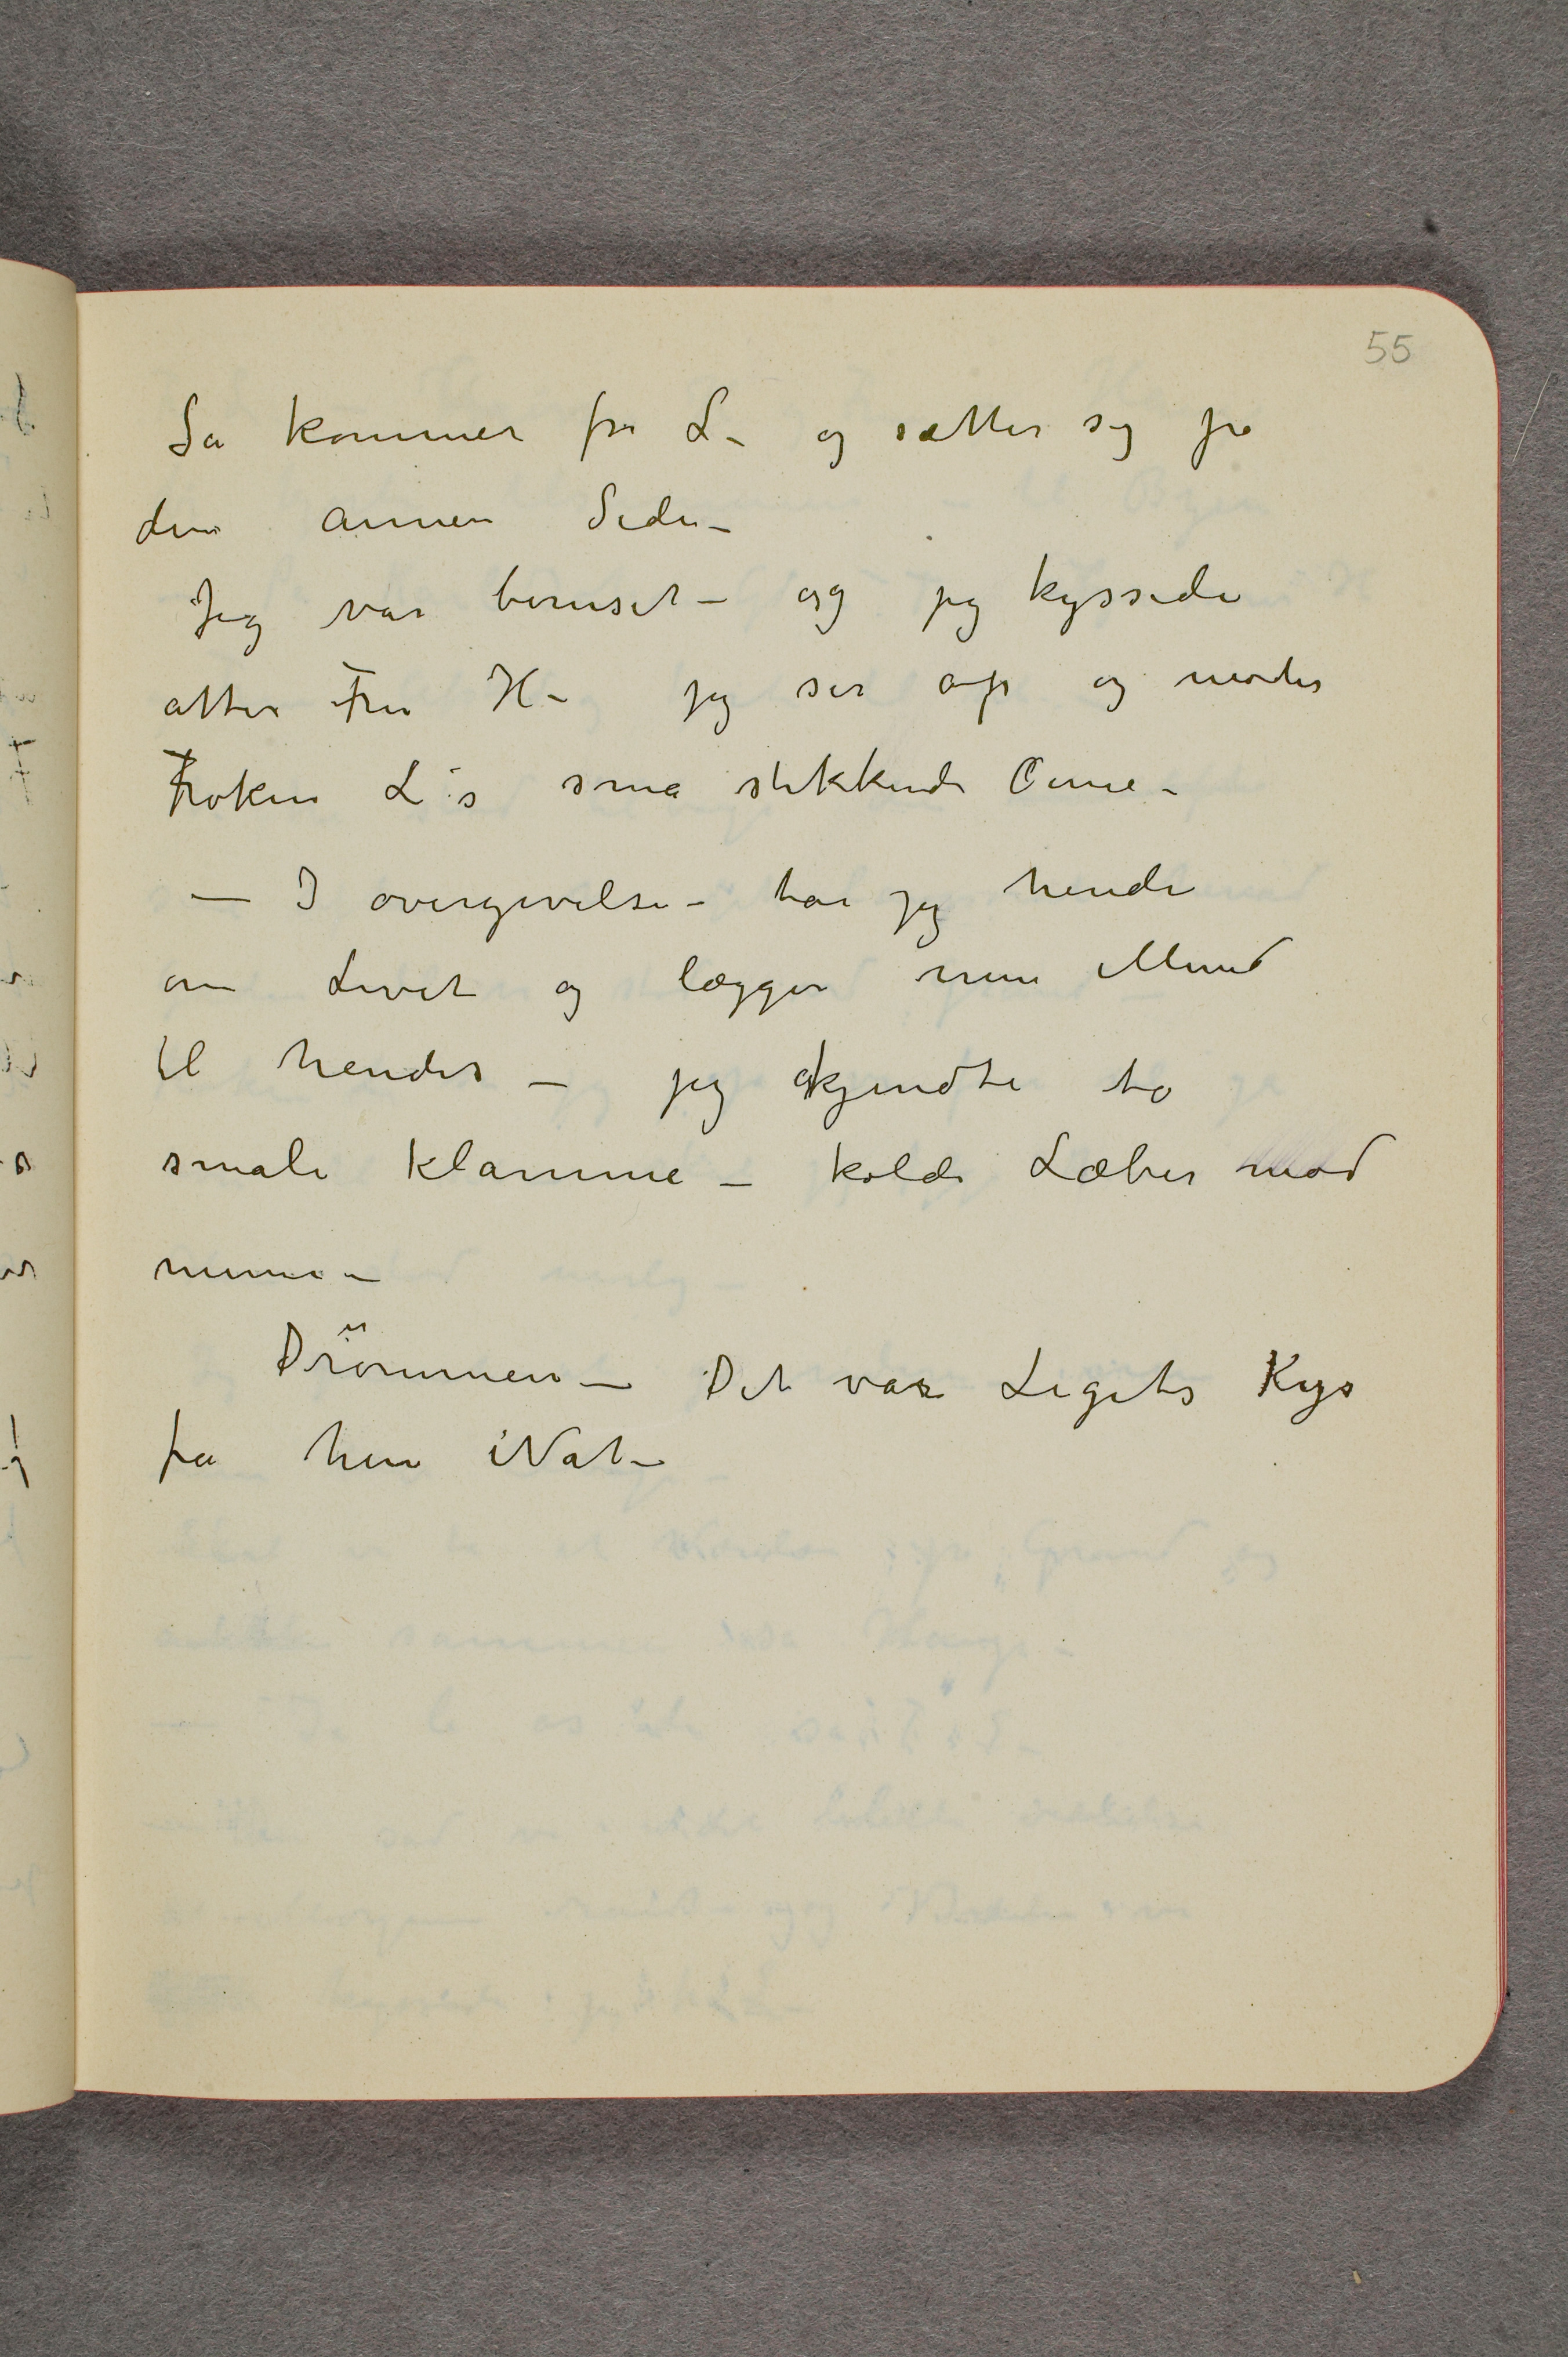 55
Så kommer frk L – og sætter sig på
den annen Side –
Jeg var beruset – og jeg kyssede
atter Fru H – jeg ser op og møder
Frøken L's små stikkende Øine –
— I overgivelse – tar jeg hende
om Livet og lægger min Mund
til hendes – jeg kjendte to
smale klamme – kolde Læber mod
mine –
Drömmen – Det var Ligets Kys
fra hin Nat –